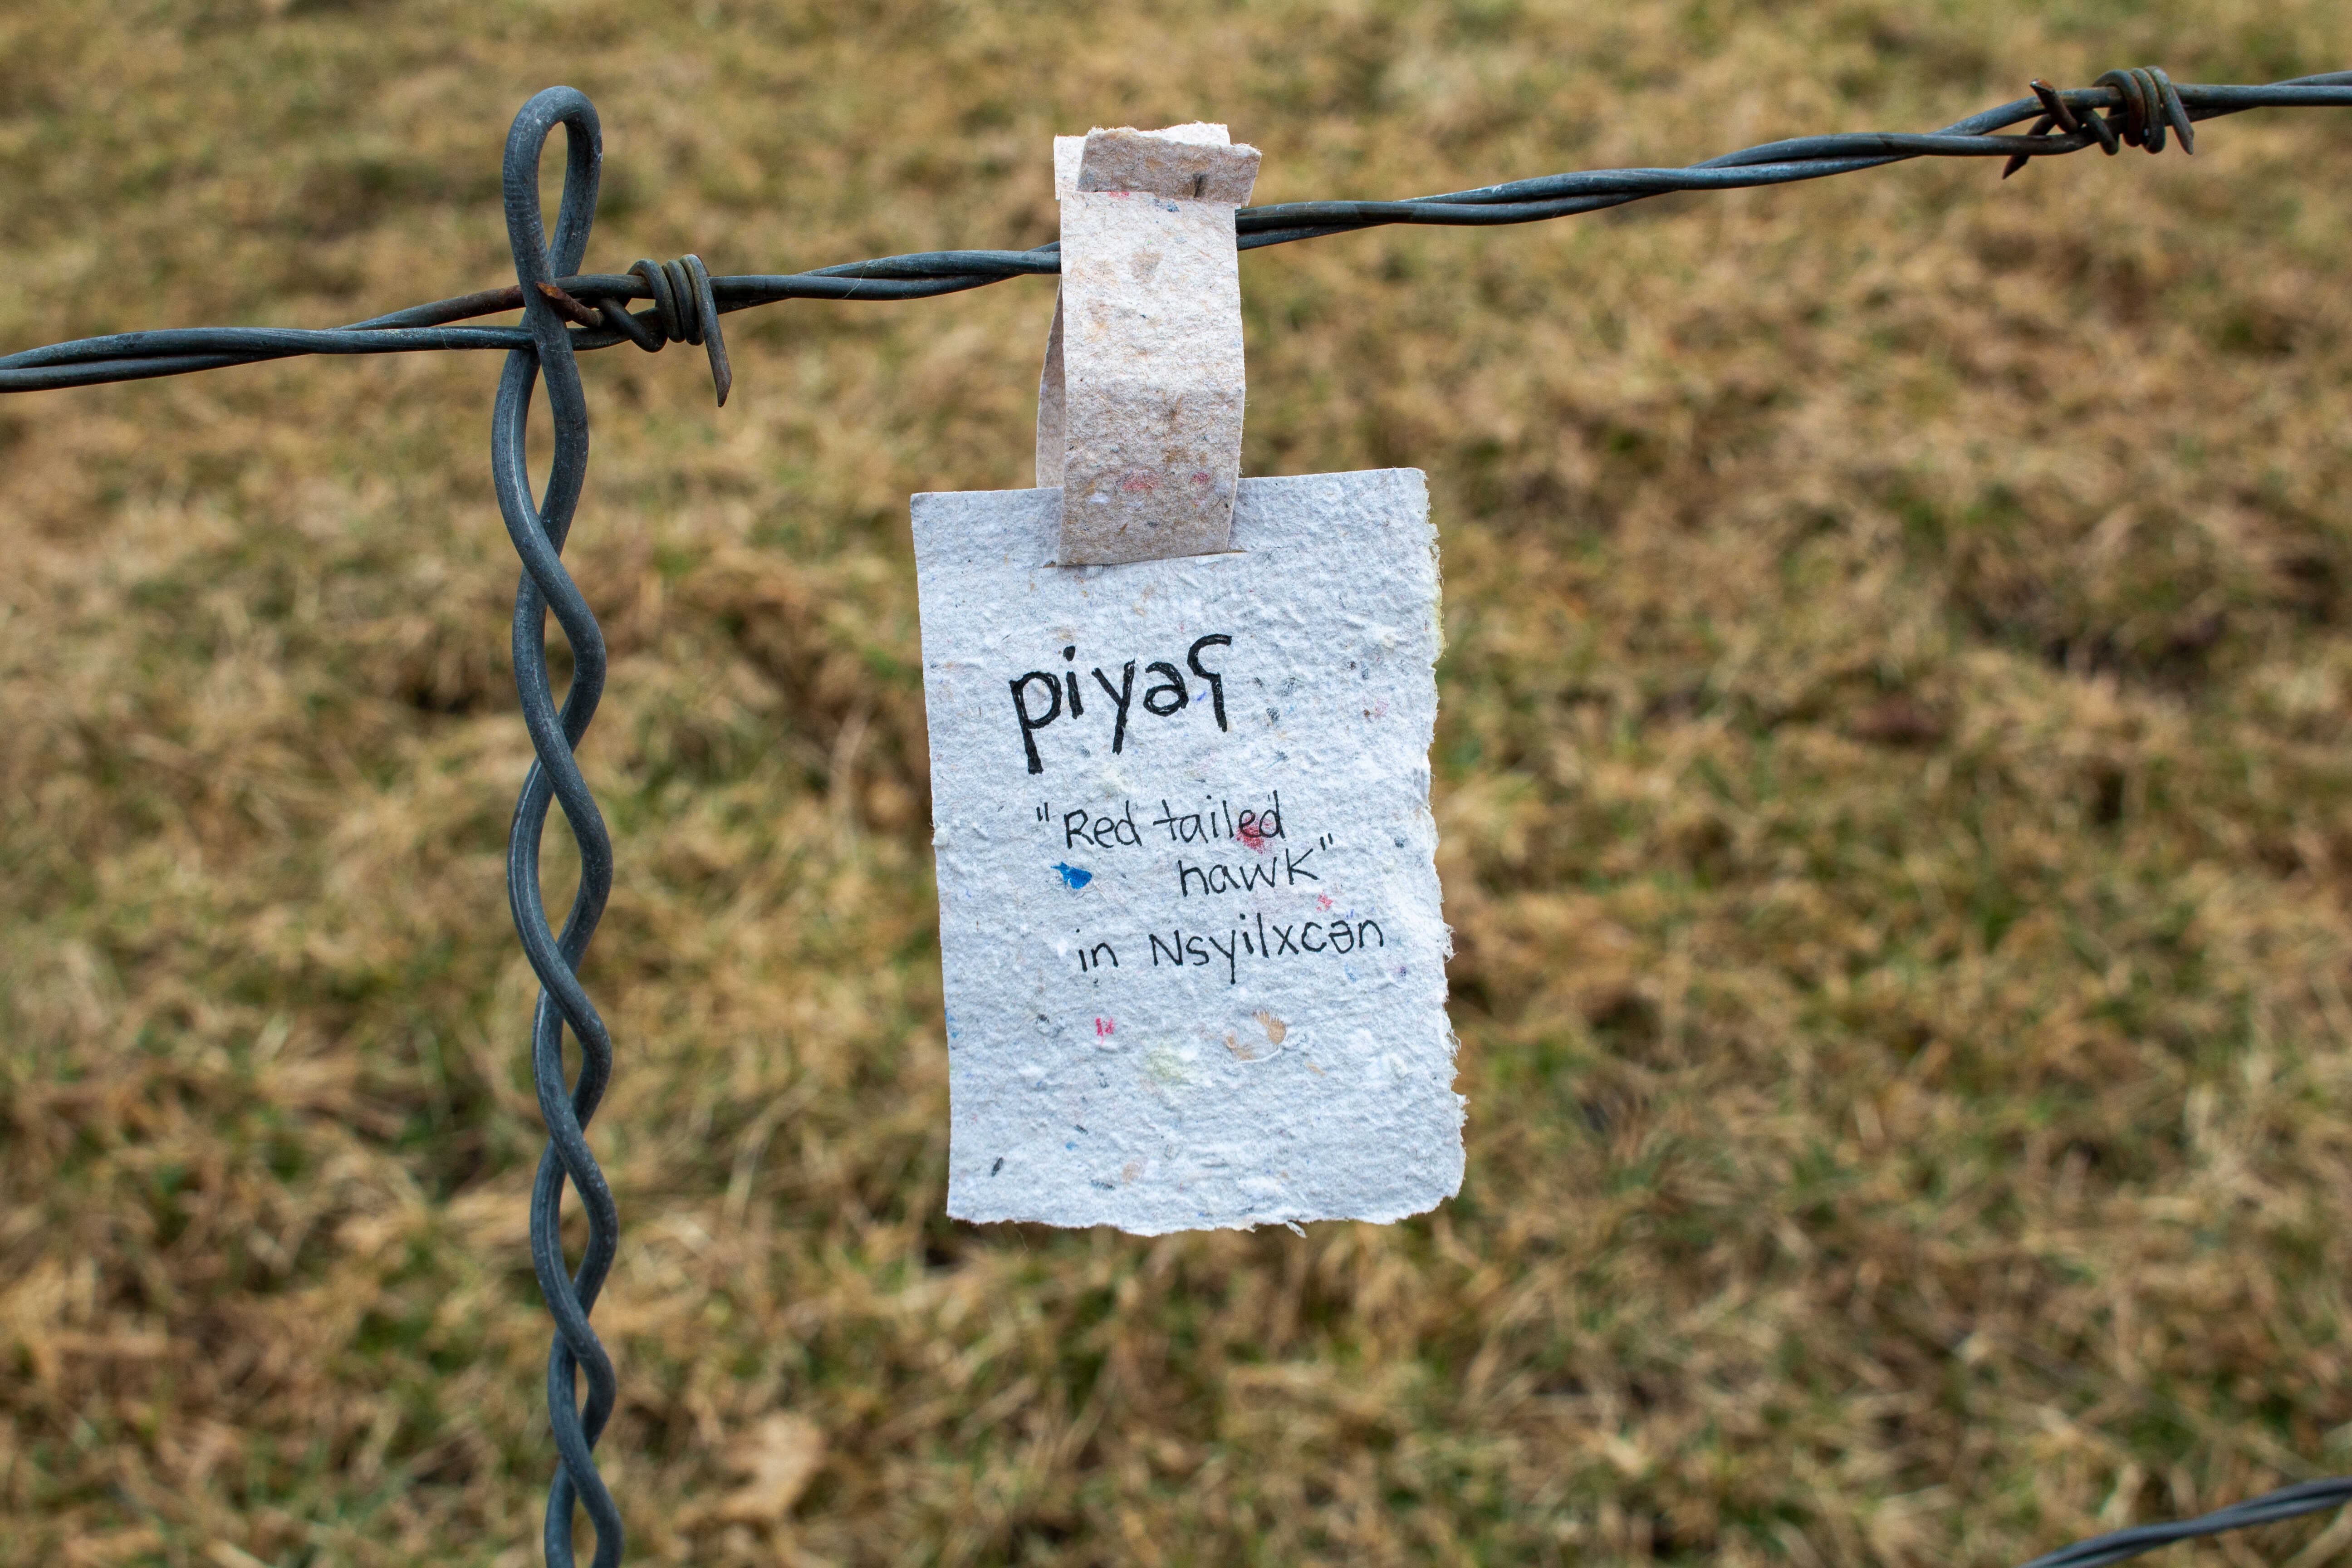 piyaʕ
"Red tailed
hawk"
in Nsyilxcən